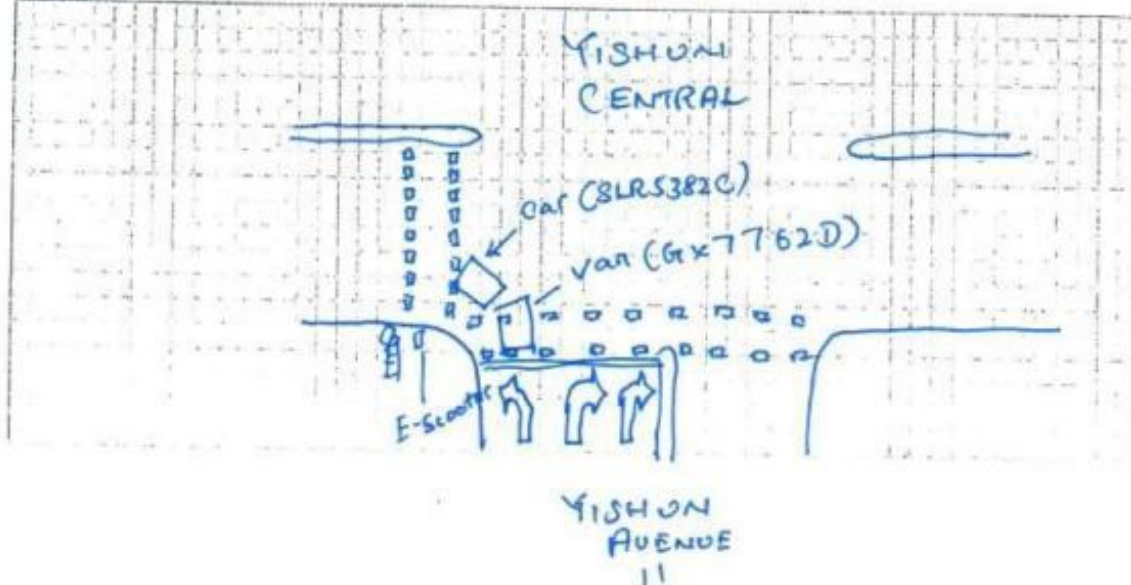 YISHUN
CENTRAL
car (SLR5382C)
van (GX7762D)
E-Scooter
YISHUN
AVENUE
11